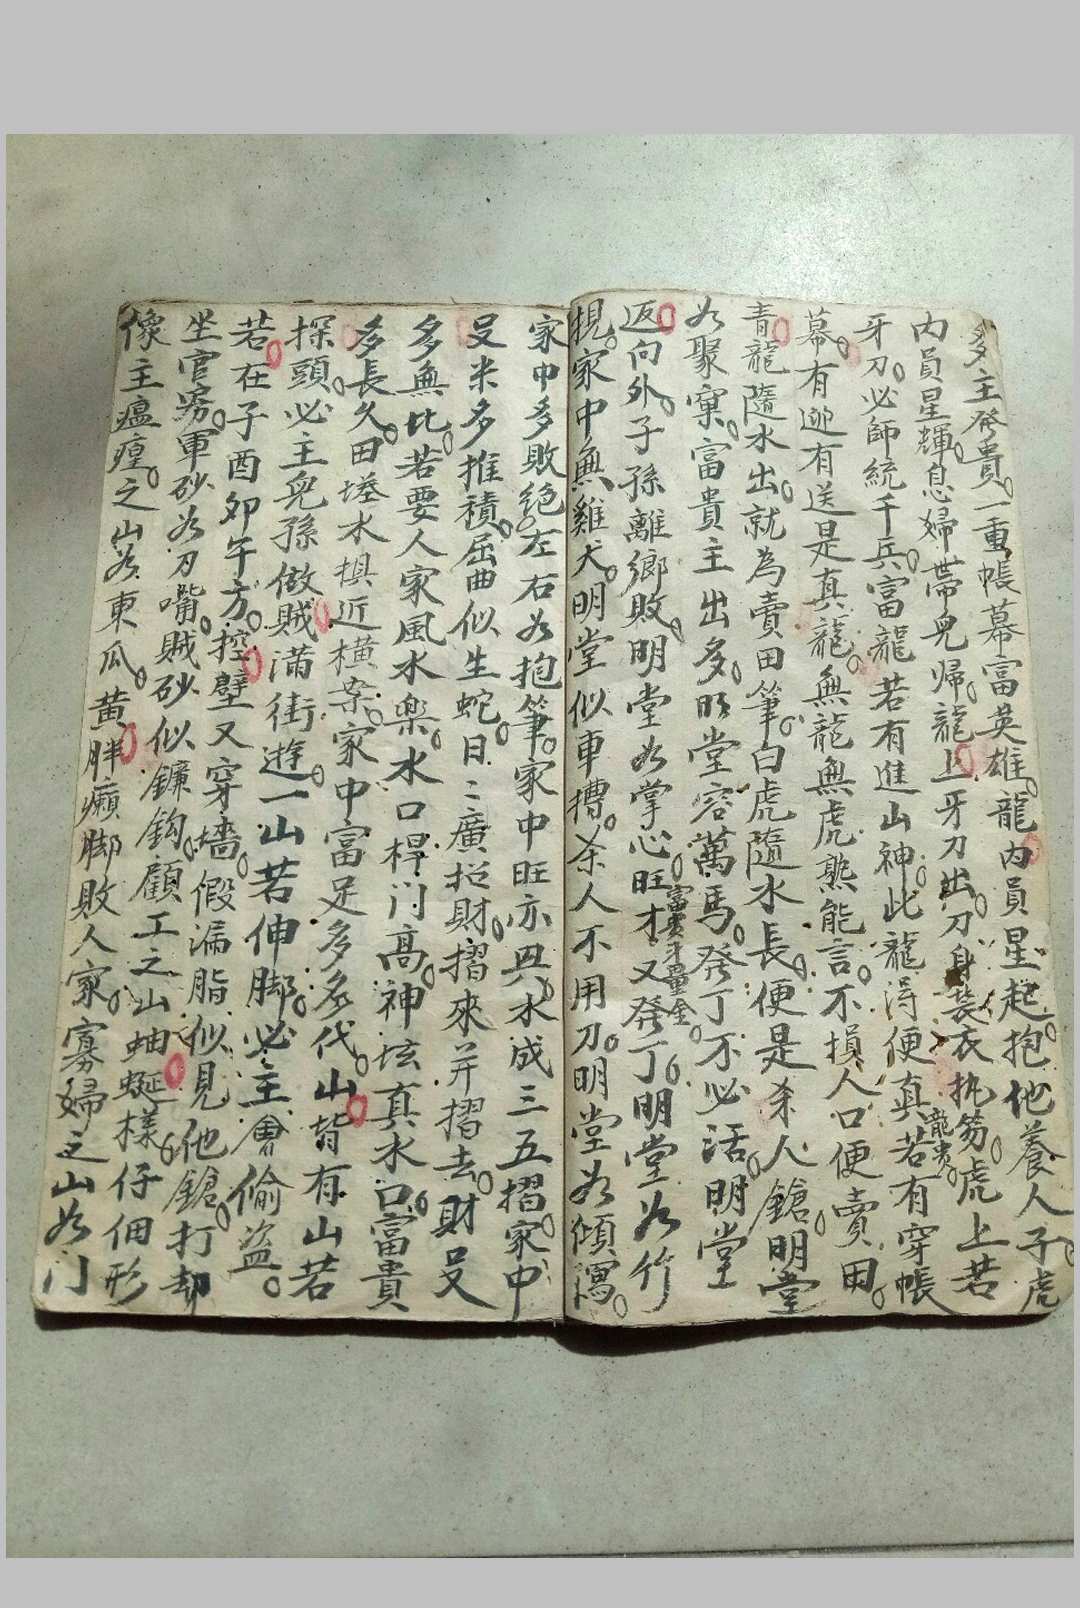 多主發貴。一重帳幕富英雄。龍內員星起。抱他養人子。虎
內員星輝。息婦帶兒歸。龍上牙刀出。刀身裝衣执笏。虎上若
牙刀。必師統千兵。富龍若有進山神。此龍得便真龍貴。若有穿帳
幕。有迎有送是真龍。無龍無虎熟能言。不損人口便賣田。
青龍隨水出。就為賣田筆。白虎隨水長。便是杀人鎗。明堂
如聚窠。富貴主出多。明堂容萬馬。發丁不必活。明堂
返向外。子孫離鄉敗。明堂如掌心。旺才又發丁。富貴斗量金。明堂如竹
梘。家中無雞犬。明堂似車槽。杀人不用刀。明堂如傾瀉。
家中多敗絕。左右如抱筆。家中旺亦興。水成三五摺。家中
旻米多推積。屈曲似生蛇。日二廣招財。摺來并摺去。財旻
多無比。若要人家風水樂。水口桿门高。神垓真水口。富貴
多長久。田墱水損近橫案。家中富足多多代。山皆有山若
探頭。必主兒孫做賊滿街遊。一山若伸脚。必主會偷盜。
若在子酉卯午方。控壁又穿墻。假漏脂似見他鎗打却
坐官穷。軍砂如刀嘴。賊砂似鐮鈎。顧工之山蚰蜒樣。仔佃形
像主瘟𤶊。之山如東瓜。黃胖癩脚敗人家。寡婦之山如门